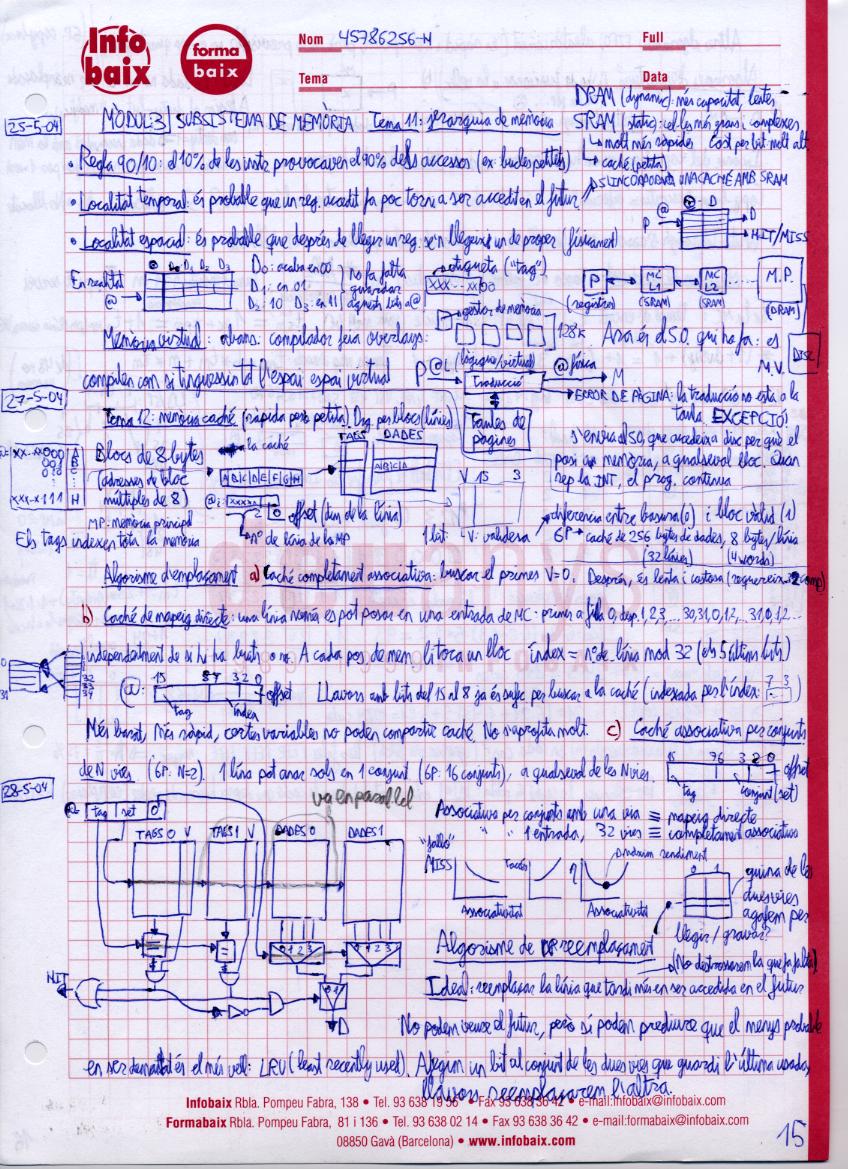 Info baix
forma baix
Nom 45786256-N
Full
Tema
Data
DRAM (dynamic): més capacitat, lentes
25-5-04
MÒDUL 3 SUBSISTEMA DE MEMÒRIA Tema 11: jerarquia de memòria
SRAM (static): cel·les més grans i complexes
molt més ràpides Cost per bit molt alt
caché (petita)
• Regla 90/10: el 10% de les instr provocaven el 90% dels accessos (ex: bucles petits)
S'INCORPORAVA UNA CACHÉ AMB SRAM
• Localitat temporal: és probable que un reg. accedit fa poc torni a ser accedit en el futur
@ D
P D
HIT/MISS
• Localitat espacial: és probable que després de llegir un reg. se'n llegeixi un de proper (físicament)
En realitat
@
D0 D1 D2 D3
D0: acaba en 00
D1: en 01
D2: 10 D3: en 11
no fa falta guardar aquests bits a @
etiqueta ("tag")
XXX...XX00
P MC L1 MC L2 M.P.
(registres) (SRAM) (SRAM) (DRAM)
DISC
gestor de memòria
128k
Memòria virtual: abans: compilador feia overlays:
Ara és el S.O. qui ho fa: es
M.V.
compilen com si tinguessin tot l'espai espai virtual
P @L (lògique/virtual) Traducció @física M
27-5-04
ERROR DE PÀGINA: la traducció no està a la taula EXCEPCIÓ
Taules de pàgines
Tema 12: memòria caché (ràpida però petita). Org. per blocs (línies)
S'envia al SO, que accedeix a disc per què el
posi en memòria, a qualsevol lloc. Quan
rep la INT, el prog. continua
xx..xx000 A
001 B
010
xx..x111 H
Blocs de 8 bytes
(adresses de bloc
múltiples de 8)
la caché
A B C D E F G H
TAGS DADES
ABCD
V 15 3
MP: memòria principal
@: xxxxx 0
offset (dins de la línia)
nº de línia de la MP
1 bit V: validesa
diferencia entre basura (0) i bloc vàlid (1)
6P → caché de 256 bytes de dades, 8 bytes/línia
(32 línies) (4 words)
Els tags indexen tota la memòria
Algorisme d'emplaçament a) Caché completament associativa: buscar el primer V=0. Després, és lenta i costosa
b) Caché de mapeig directe: una línia només es pot posar en una entrada de MC. primer a fila 0, desp. 1, 2, 3, ... 30, 31, 0, 1, 2, ... 31, 0, 1, 2 ...
independentment de si hi ha buits o no. A cada pos. de mem li toca un bloc index = nº de línia mod 32 (els 5 últims bits)
@: 15 8 7 3 2 0 offset
tag index
Llavors amb bits del 15 al 8 ja és sufic per buscar a la caché (indexada per l'índex: 7 3)
Més barat, Més ràpid, certes variables no poden compartir caché. No s'aprofita molt. c) Caché associativa per conjunts
de N vies (6P: N=2). 1 línia pot anar sols en 1 conjunt (6P: 16 conjunts), a qualsevol de les N vies.
15 7 6 3 2 0 offset
tag conjunt (set)
28-5-04
va en paral·lel
@ tag set 0
TAGS 0 V TAGS 1 V DADES 0 DADES 1
Associativa per conjunts amb una via ≡ mapeig directe
" " 1 entrada, 32 vies ≡ completament associativa
"fallo"
MISS
Associativitat
Tacces
η
màxim rendiment
Associativitat
0 1
quina de les
dues vies
agafem per
llegir / gravar?
= =
0 1 2 3 0 1 2 3
HIT
0 1
D
Algorisme de reemplaçament
(No destrossarem la que fa falta)
Ideal: reemplaçar la línia que tardi més en ser accedida en el futur
No podem veure el futur, però sí podem predir que el menys probable
en ser demanat és el més vell: LRU (least recently used). Afegim un bit al conjunt de les dues vies que guardi l'última usada,
llavors reemplaçarem l'altra.
Infobaix Rbla. Pompeu Fabra, 138 • Tel. 93 638 19 56 • Fax 93 638 36 42 • e-mail:infobaix@infobaix.com
Formabaix Rbla. Pompeu Fabra, 81 i 136 • Tel. 93 638 02 14 • Fax 93 638 36 42 • e-mail:formabaix@infobaix.com
08850 Gavà (Barcelona) • www.infobaix.com
15